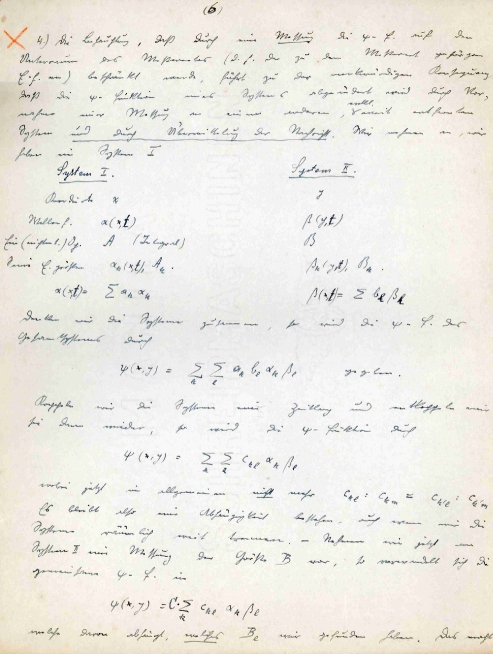 (6)
4.) Die Behauptung, daß durch eine Messung die ψ-F. auf den
Unterraum des Messwertes (d. h. der zu dem Messwert gehörigen
E.F. en) beschränkt werde, führt zu der merkwürdigen Konsequenz,
daß die ψ-Funktion eines Systems abgeändert wird durch Vor-
nahme einer Messung an einem anderen, evtl. weit entfernten
System und durch Übermittelung der Nachricht. Wir nehmen an, wir
haben ein System I
System I. System II.
Koordinate x y
Wellenf. α(xt) β(y,t)
Ein Op. A (Integral) B
Seine E. größen αₙ(xt), Aₙ. βₙ(y,t), Bₙ.
α(xt) = Σ aₙ αₙ β(xt) = Σ bℓ βℓ
Denken wir die Systeme zusammen, so wird die ψ-F. des
Gesamtsystems durch
ψ(x,y) = Σₙ Σℓ aₙ bℓ αₙ βℓ gegeben.
Koppeln wir die Systeme eine Zeitlang und entkoppeln wir
sie dann wieder, so wird die ψ-Funktion durch
ψ(x,y) = Σₙ Σℓ cₙℓ αₙ βℓ
wobei jetzt im allgemeinen nicht mehr cₙℓ : cₙₘ = cₙ'ℓ : cₙ'ₘ
Es bleibt also eine Abhängigkeit bestehen, auch wenn wir die
Systeme räumlich weit trennen. – Nehmen wir jetzt am
System II eine Messung der Größe B vor, so verwandelt sich die
gemeinsame ψ-F. in
ψ(x,y) = C·Σₙ cₙℓ αₙ βℓ
welche davon abhängt, welches Bℓ wir gefunden haben. Das macht